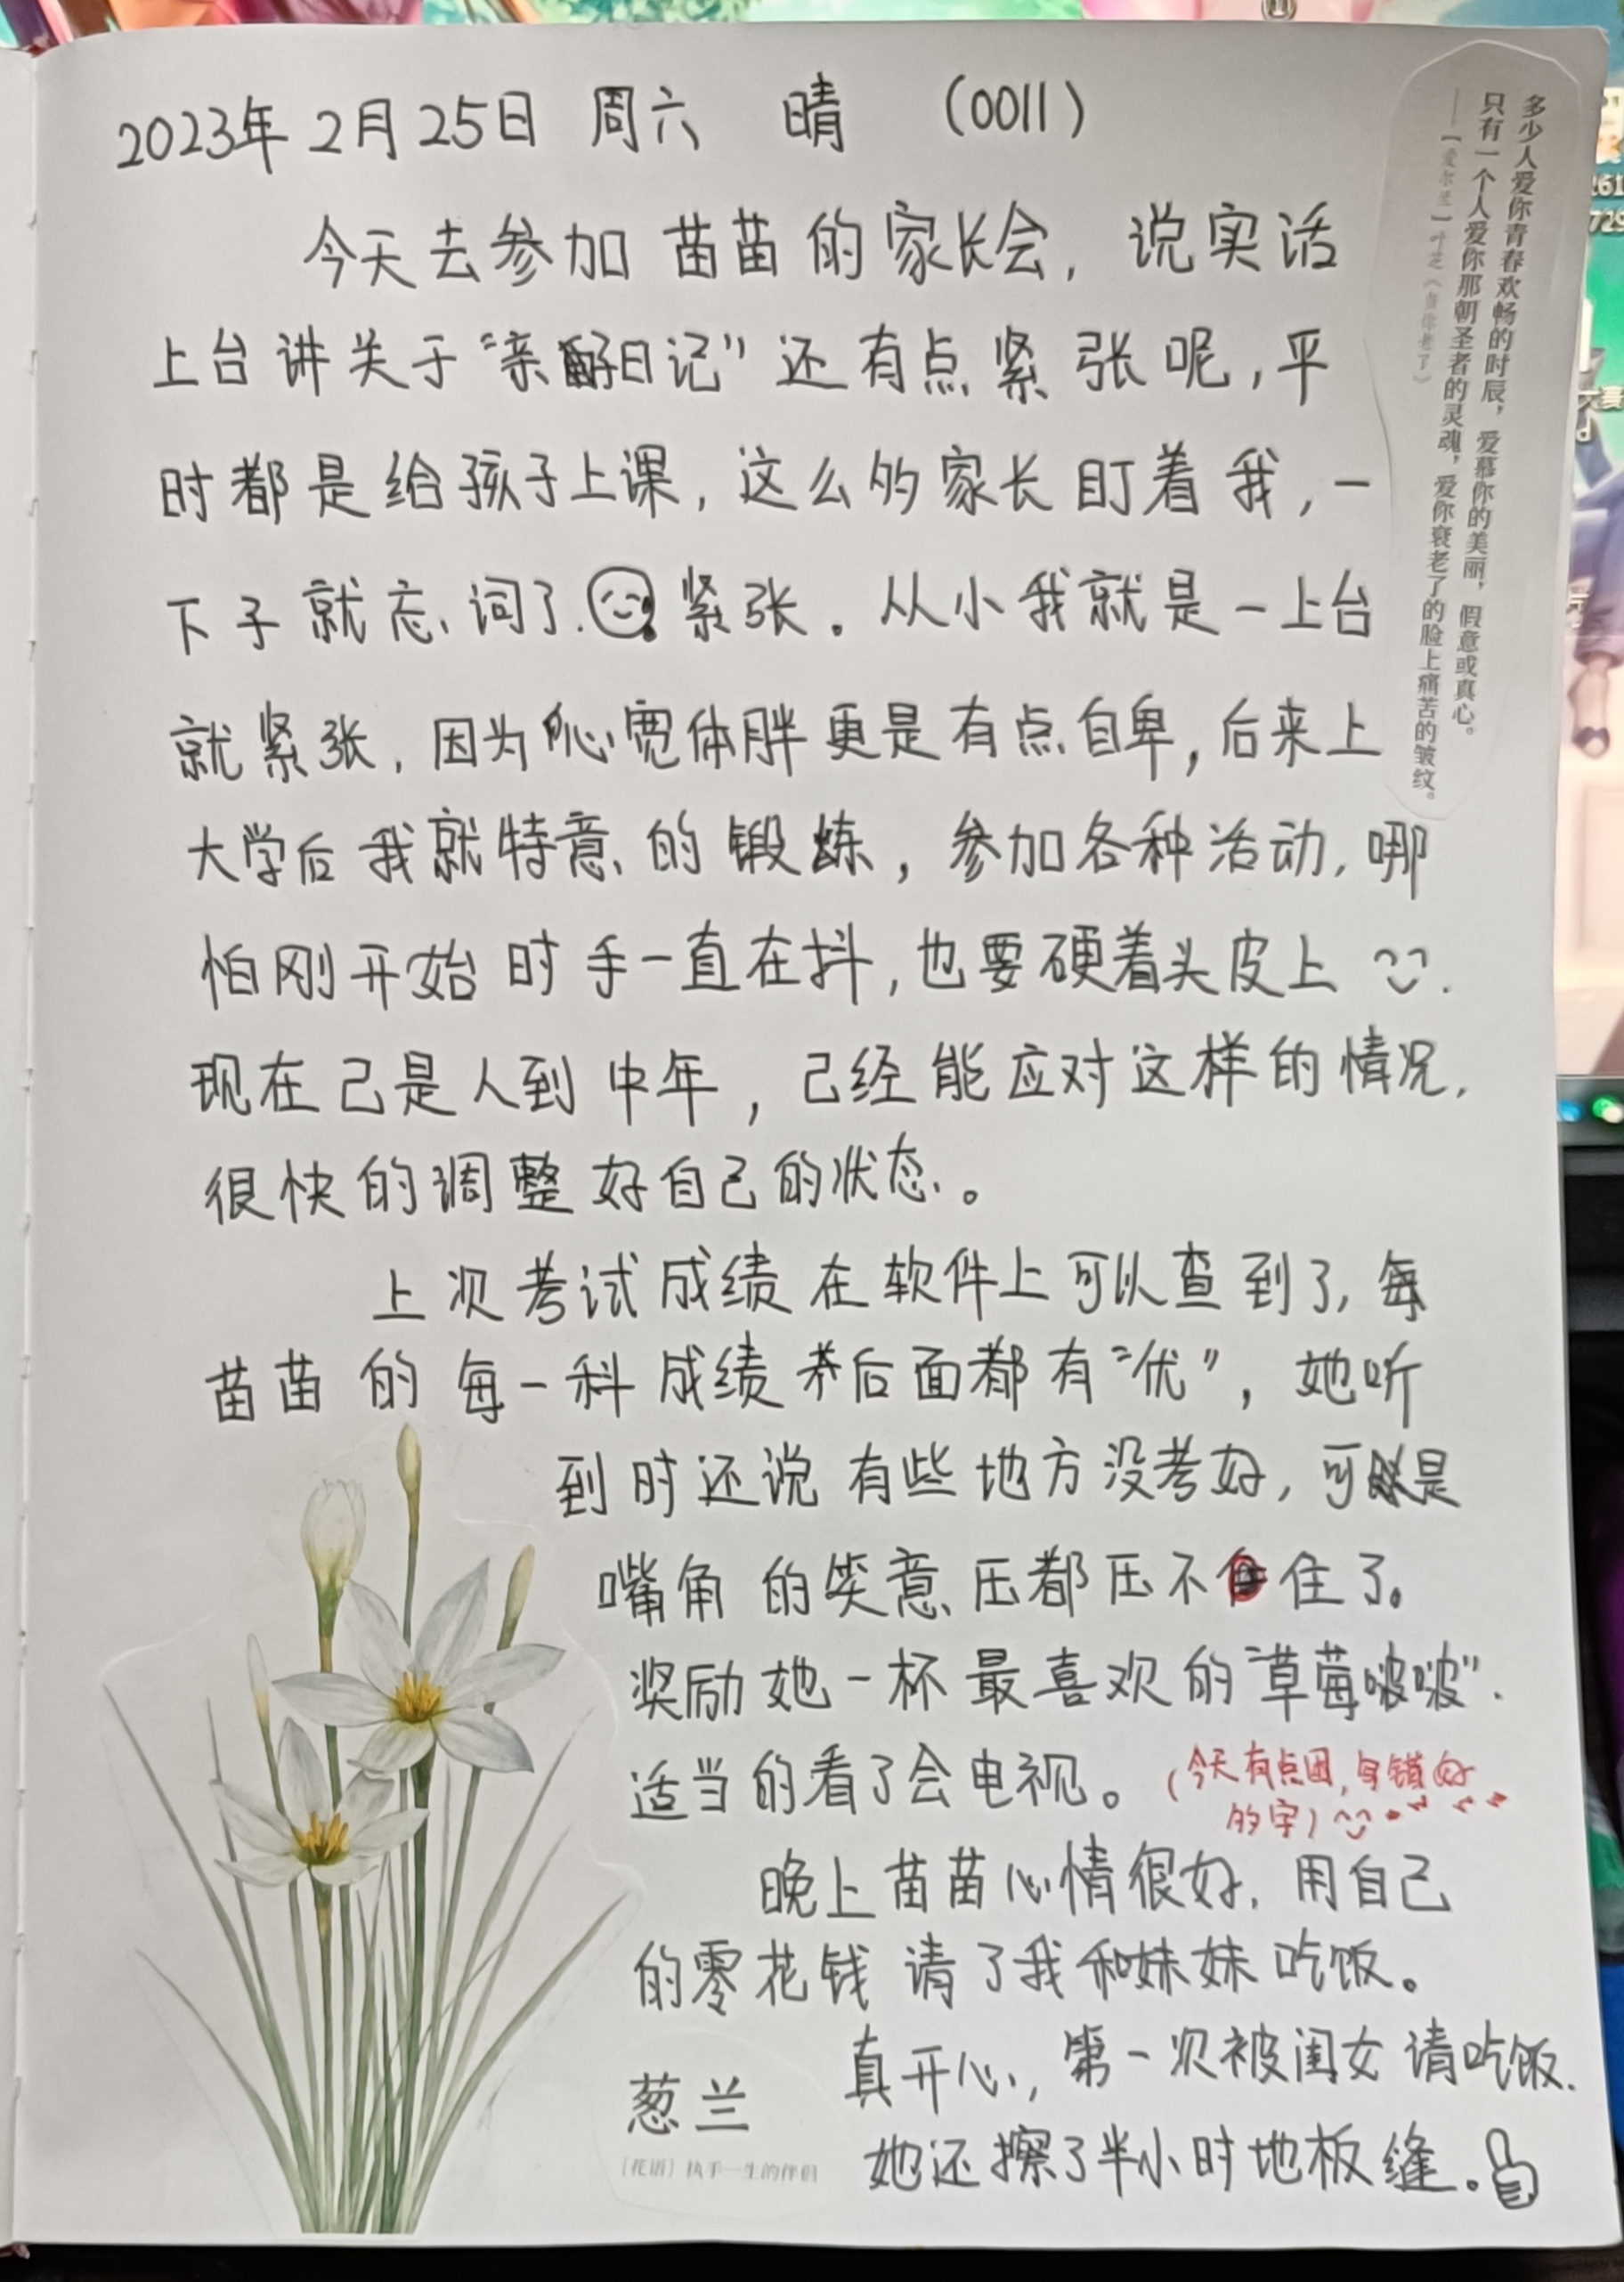 2023年2月25日 周六 晴 (0011)
今天去参加苗苗的家长会，说实话
上台讲关于“亲子日记”还有点紧张呢，平
时都是给孩子上课，这么的家长盯着我，一
下子就忘词了.紧张。从小我就是一上台
就紧张，因为心宽体胖更是有点自卑，后来上
大学后我就特意的锻炼，参加各种活动，哪
怕刚开始时手一直在抖，也要硬着头皮上.
现在己是人到中年，己经能应对这样的情况，
很快的调整好自己的状态。
上次考试成绩在软件上可以查到了，每
苗苗的每一科成绩后面都有“优”，她听
到时还说有些地方没考好，可是
嘴角的笑意压都压不住了。
奖励她一杯最喜欢的“草莓啵啵”.
适当的看了会电视。(今天有点困，写错好
的字)
晚上苗苗心情很好，用自己
的零花钱请了我和妹妹吃饭。
真开心，第一次被闺女请吃饭.
她还擦了半小时地板缝。
葱兰
[花语] 执手一生的伴侣
多少人爱你青春欢畅的时辰，爱慕你的美丽，假意或真心。
只有一个人爱你那朝圣者的灵魂，爱你衰老了的脸上痛苦的皱纹。
——[爱尔兰] 叶芝《当你老了》